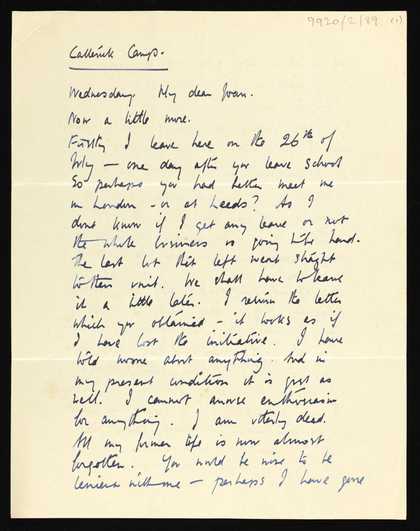 9920/2/89 (1)
Catterick Camp.
Wednesday My dear Joan.
Now a little more.
Firstly I leave here on the 26th of
July — one day after you leave School
So perhaps you had better meet me
in London - or at Leeds? As I
dont know if I get any leave or not
the whole business is going to be hard.
The last lot that left went straight
to their unit. We shall have to leave
it a little later. I return the letter
which you obtained - it looks as if
I have lost the initiative. I have
told no one about anything. And in
my present condition it is just as
well. I cannot arouse enthusiasm
for anything. I am utterly dead.
All my former life is now almost
forgotten. You would be wise to be
lenient with me — perhaps I have gone